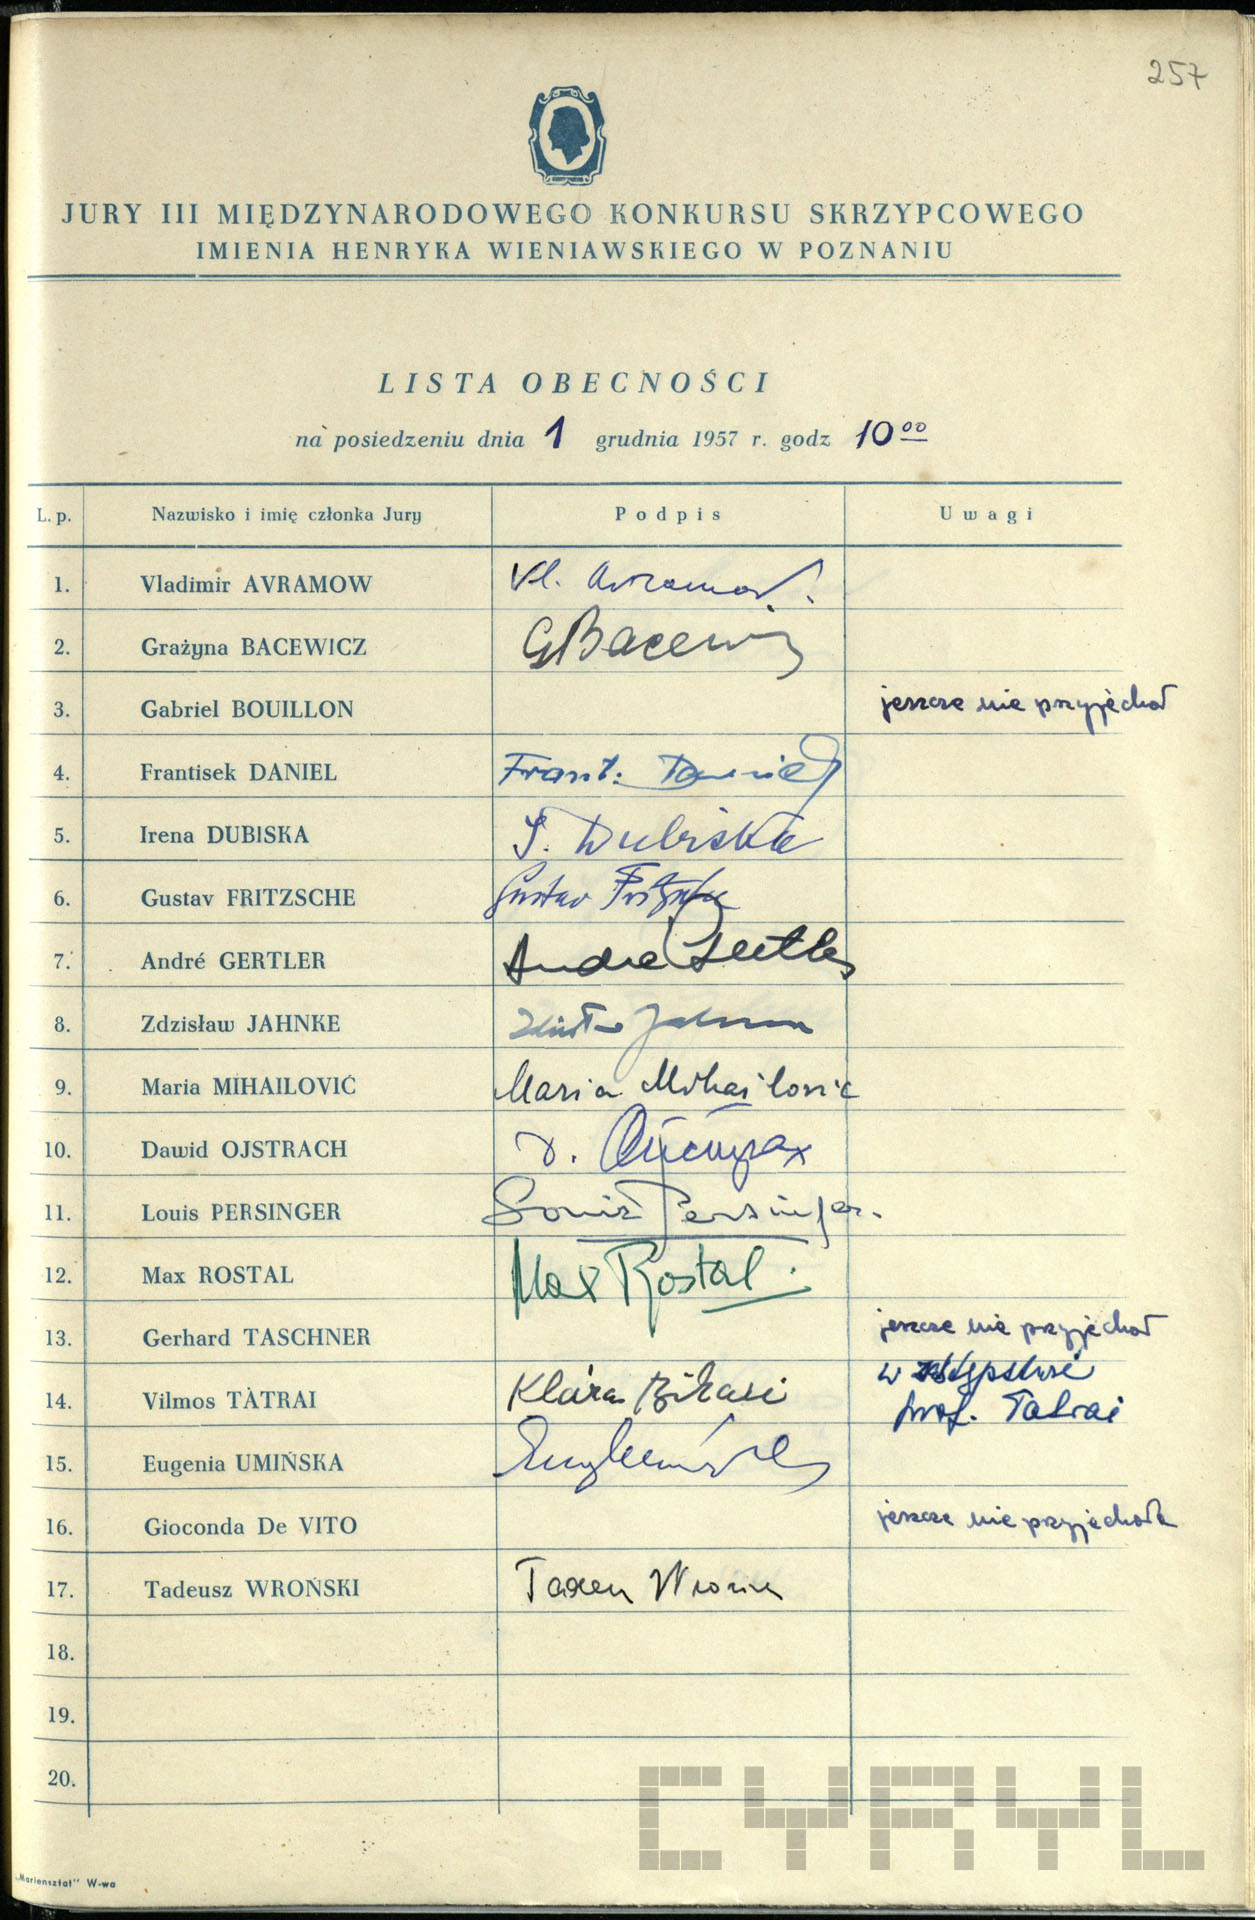 257
JURY III MIĘDZYNARODOWEGO KONKURSU SKRZYPCOWEGO
IMIENIA HENRYKA WIENIAWSKIEGO W POZNANIU
LISTA OBECNOŚCI
na posiedzeniu dnia 1 grudnia 1957 r. godz 10 00
L. p. Nazwisko i imię członka Jury Podpis Uwagi
1. Vladimir AVRAMOW Vl. Avramov
2. Grażyna BACEWICZ GBacewicz
3. Gabriel BOUILLON jeszcze nie przyjechał
4. Frantisek DANIEL Frant. Daniel
5. Irena DUBISKA I. Dubiska
6. Gustav FRITZSCHE Gustav Fritzsche
7. André GERTLER André Gertler
8. Zdzisław JAHNKE Zdzisław Jahnke
9. Maria MIHAILOVIĆ Maria Mihailović
10. Dawid OJSTRACH Д. Ойстрах
11. Louis PERSINGER Louis Persinger.
12. Max ROSTAL Max Rostal.
13. Gerhard TASCHNER jeszcze nie przyjechał
14. Vilmos TÀTRAI Klára w zastępstwie
prof. Tatrai
15. Eugenia UMIŃSKA EugUmińska
16. Gioconda De VITO jeszcze nie przyjechała
17. Tadeusz WROŃSKI Tadeusz Wroński
18.
19.
20.
"Mariensztat" W-wa
CYRYL